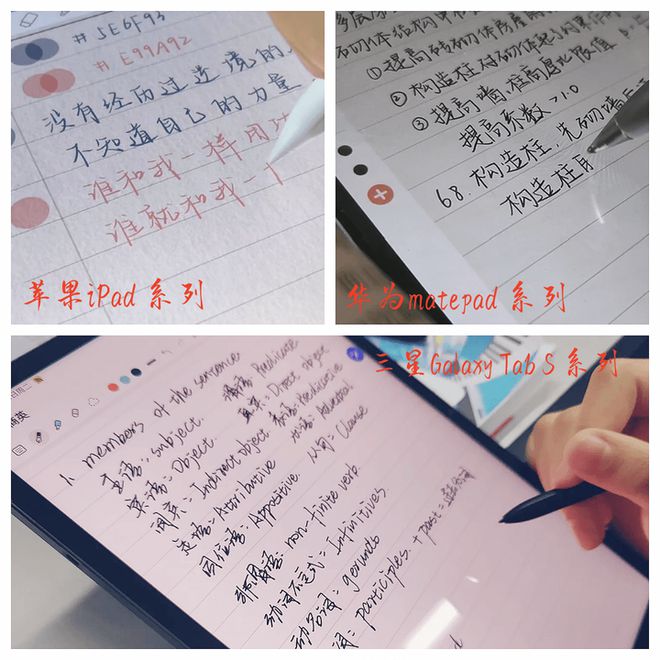 #5E6F93
#E99A92
没有经历过逆境的人
不知道自己的力量
谁和我一样用功
谁就和我一
苹果iPad系列
①提高砖砌体房屋的
②构造柱对砌体起约束作用
③提高墙、柱高厚比限值
提高系数>1.0
68.构造柱,先砌墙后
构造柱
华为matepad系列
三星GalaxyTabS系列
1. members of the sentence
主语: subject.
宾语= Object.
间宾= Indirect object
直宾= Direct object
定语= Attributive
同位语= Appositive.
从句= Clause
非谓语: non-finite verb.
动词不定式= Infinitives
动名词= gerund
词= participles.